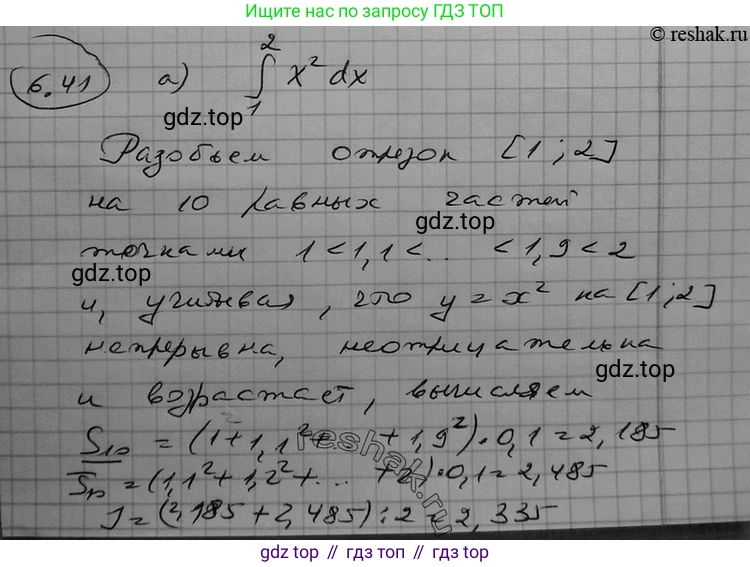 Ищите нас по запросу ГДЗ ТОП
© reshak.ru
6.41 а) ∫₁² x² dx
gdz.top
Разобьем отрезок [1; 2]
на 10 равных частей
gdz.top
точками 1 < 1,1 < .. < 1,9 < 2
gdz.top
и, учитывая, что y = x² на [1; 2]
непрерывна, неотрицательна
gdz.top
и возрастает, вычисляем
S₁₀ = (1 + 1,1² + + 1,9²) · 0,1 = 2,185
reshak.ru
S₁₀ = (1,1² + 1,2² + ... + 2²) · 0,1 = 2,485
J = (2,185 + 2,485) : 2 = 2,335
gdz.top // гдз.топ // gdz.top